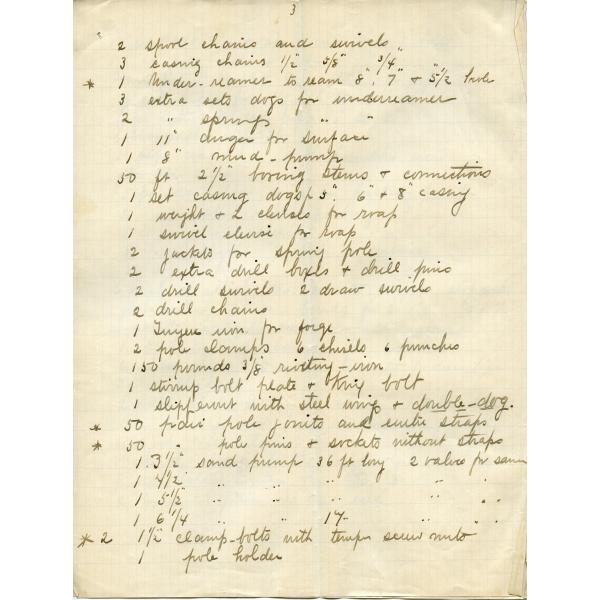 3
2 spool chains and swivels
3 casing chains 1/2" 5/8" 3/4"
* 1 Under-reamer to ream 8", 7" & "5 1/2 hole
3 extra sets dogs for underreamer
2 " springs " "
1 11" auger for surface
1 8" mud-pump
50 ft 2 1/2" boring stems & connections
1 set casing dogs 5", 6" & 8" casing
1 weight & 2 clevises for rasp
1 swivel clevise for rasp
2 jackets for spring pole
2 extra drill boxes & drill pins
2 drill swivels 2 draw swivels
2 drill chains
1 Tuyere iron for forge
2 pole clamps 6 chisels 6 punches
150 pounds 3/8 riveting-iron
1 stirrup bolt plate & King bolt
1 with steel wing & double-dog.
* 50 pair pole joints and entire straps
* 50 " pole pins & sockets without straps
1 3 1/2" sand pump 36 ft long 2 valves for same
1 4 1/2 " " " " "
1 5 1/2" " " " " "
1 6 1/4 " " 17 " "
* 2 1 1/2" clamp-bolts with temper screw nuts
1 pole holder